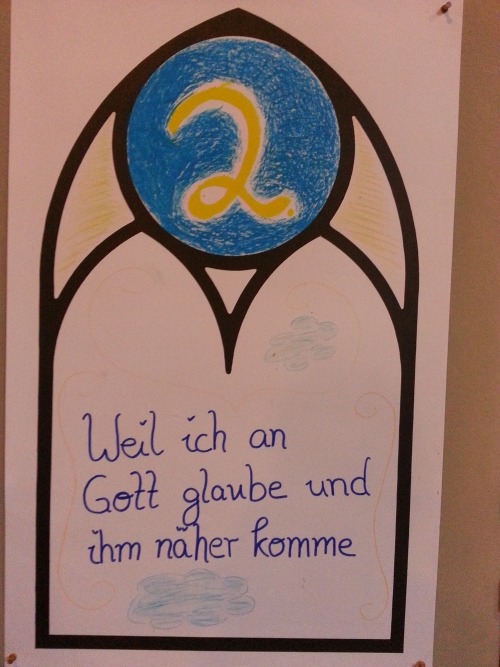 2
Weil ich an
Gott glaube und
ihm näher komme